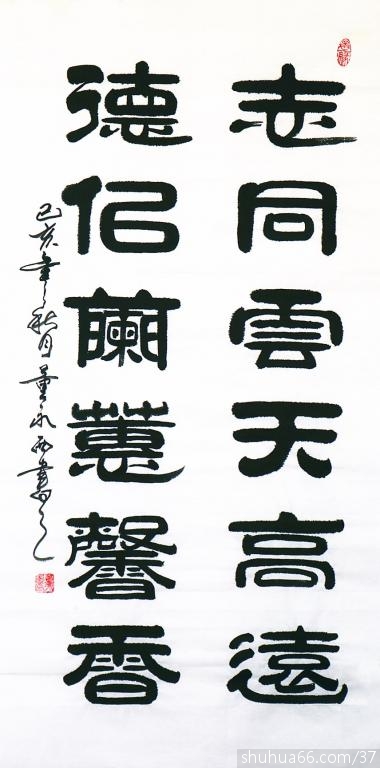 志同雲天高遠
德似蘭蕙馨香
己亥年秋月董永書之
shuhua66.com/37